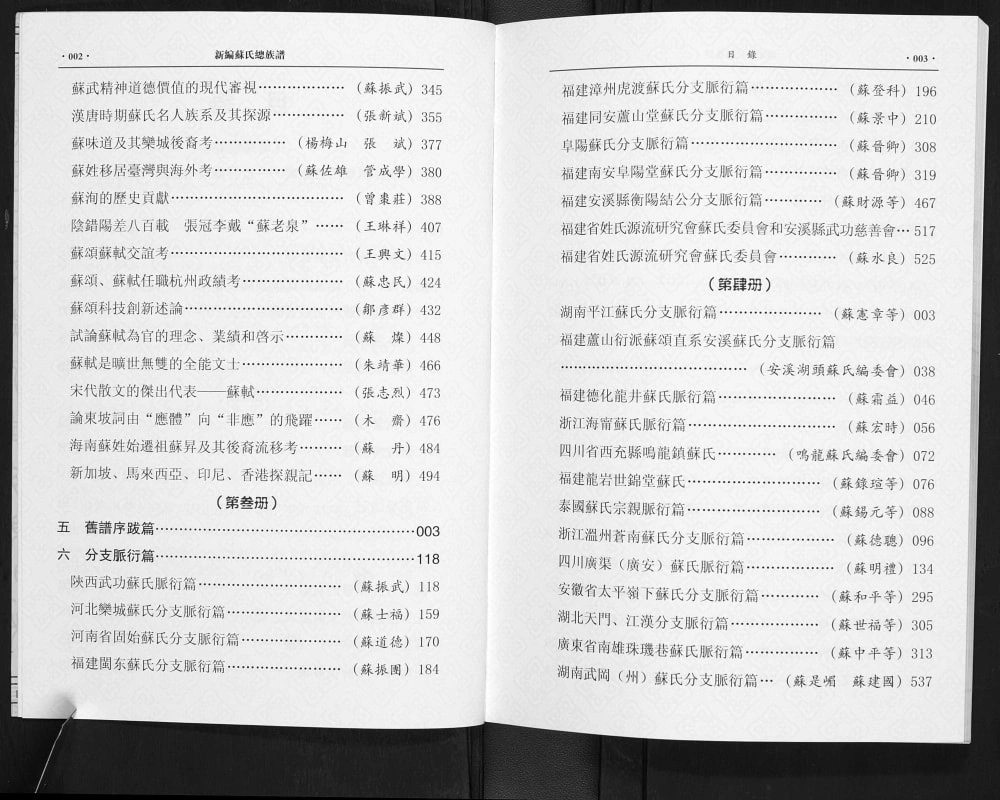 ·002·
新編蘇氏總族譜
蘇武精神道德價值的現代審視………………（蘇振武）345
漢唐時期蘇氏名人族系及其探源……………（張新斌）355
蘇味道及其欒城後裔考……………（楊梅山　張　斌）377
蘇姓移居臺灣與海外考……………（蘇佐雄　管成學）380
蘇洵的歷史貢獻………………………………（曾棗莊）388
陰錯陽差八百載　張冠李戴“蘇老泉”……（王琳祥）407
蘇頌蘇軾交誼考………………………………（王興文）415
蘇頌、蘇軾任職杭州政績考…………………（蘇忠民）424
蘇頌科技創新述論……………………………（鄒彥群）432
試論蘇軾為官的理念、業績和啓示…………（蘇　燦）448
蘇軾是曠世無雙的全能文士…………………（朱靖華）466
宋代散文的傑出代表——蘇軾………………（張志烈）473
論東坡詞由“應體”向“非應”的飛躍……（木　齋）476
海南蘇姓始遷祖蘇昇及其後裔流移考………（蘇　丹）484
新加坡、馬來西亞、印尼、香港探親記……（蘇　明）494
（第叁册）
五　舊譜序跋篇………………………………………………003
六　分支脈衍篇………………………………………………118
陝西武功蘇氏脈衍篇…………………………（蘇振武）118
河北欒城蘇氏分支脈衍篇……………………（蘇士福）159
河南省固始蘇氏分支脈衍篇…………………（蘇道德）170
福建閩东蘇氏分支脈衍篇……………………（蘇振團）184
目　錄
·003·
福建漳州虎渡蘇氏分支脈衍篇………………（蘇登科）196
福建同安蘆山堂蘇氏分支脈衍篇……………（蘇景中）210
阜陽蘇氏分支脈衍篇…………………………（蘇晉卿）308
福建南安阜陽堂蘇氏分支脈衍篇……………（蘇晉卿）319
福建安溪縣衡陽結公分支脈衍篇…………（蘇財源等）467
福建省姓氏源流研究會蘇氏委員會和安溪縣武功慈善會…517
福建省姓氏源流研究會蘇氏委員會…………（蘇水良）525
（第肆册）
湖南平江蘇氏分支脈衍篇…………………（蘇憲章等）003
福建蘆山衍派蘇頌直系安溪蘇氏分支脈衍篇
…………………………………（安溪湖頭蘇氏編委會）038
福建德化龍井蘇氏脈衍篇……………………（蘇霜益）046
浙江海甯蘇氏脈衍篇…………………………（蘇宏時）056
四川省西充縣鳴龍鎮蘇氏…………（鳴龍蘇氏編委會）072
福建龍岩世錦堂蘇氏………………………（蘇錄瑄等）076
泰國蘇氏宗親脈衍篇………………………（蘇錫元等）088
浙江溫州蒼南蘇氏分支脈衍篇………………（蘇德聰）096
四川廣渠（廣安）蘇氏脈衍篇………………（蘇明禮）134
安徽省太平嶺下蘇氏分支脈衍篇…………（蘇和平等）295
湖北天門、江漢分支脈衍篇………………（蘇世福等）305
廣東省南雄珠璣巷蘇氏脈衍篇……………（蘇中平等）313
湖南武岡（州）蘇氏分支脈衍篇…（蘇是崛　蘇建國）537